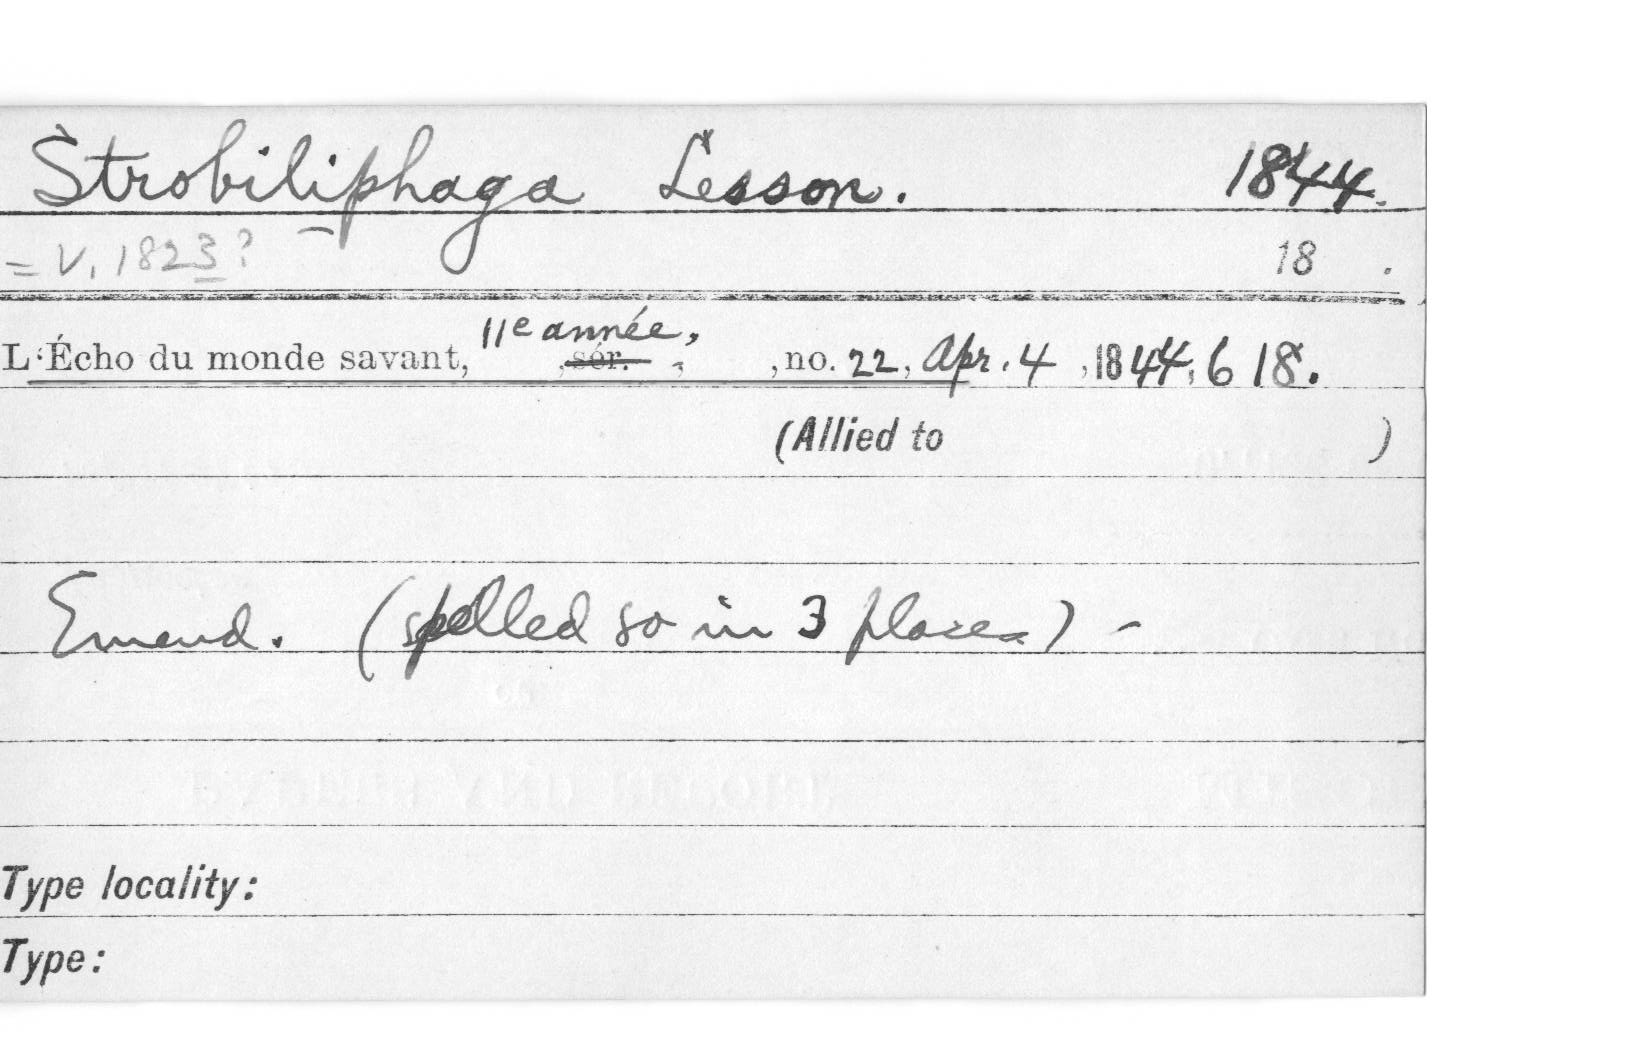 Strobiliphaga Lesson. 1844.
= V. 1823? 18 .
11e année,
L'Écho du monde savant, , sér. , , no. 22, Apr. 4 , 1844, 618.
(Allied to )
Emend. (spelled so in 3 places) -
Type locality:
Type: